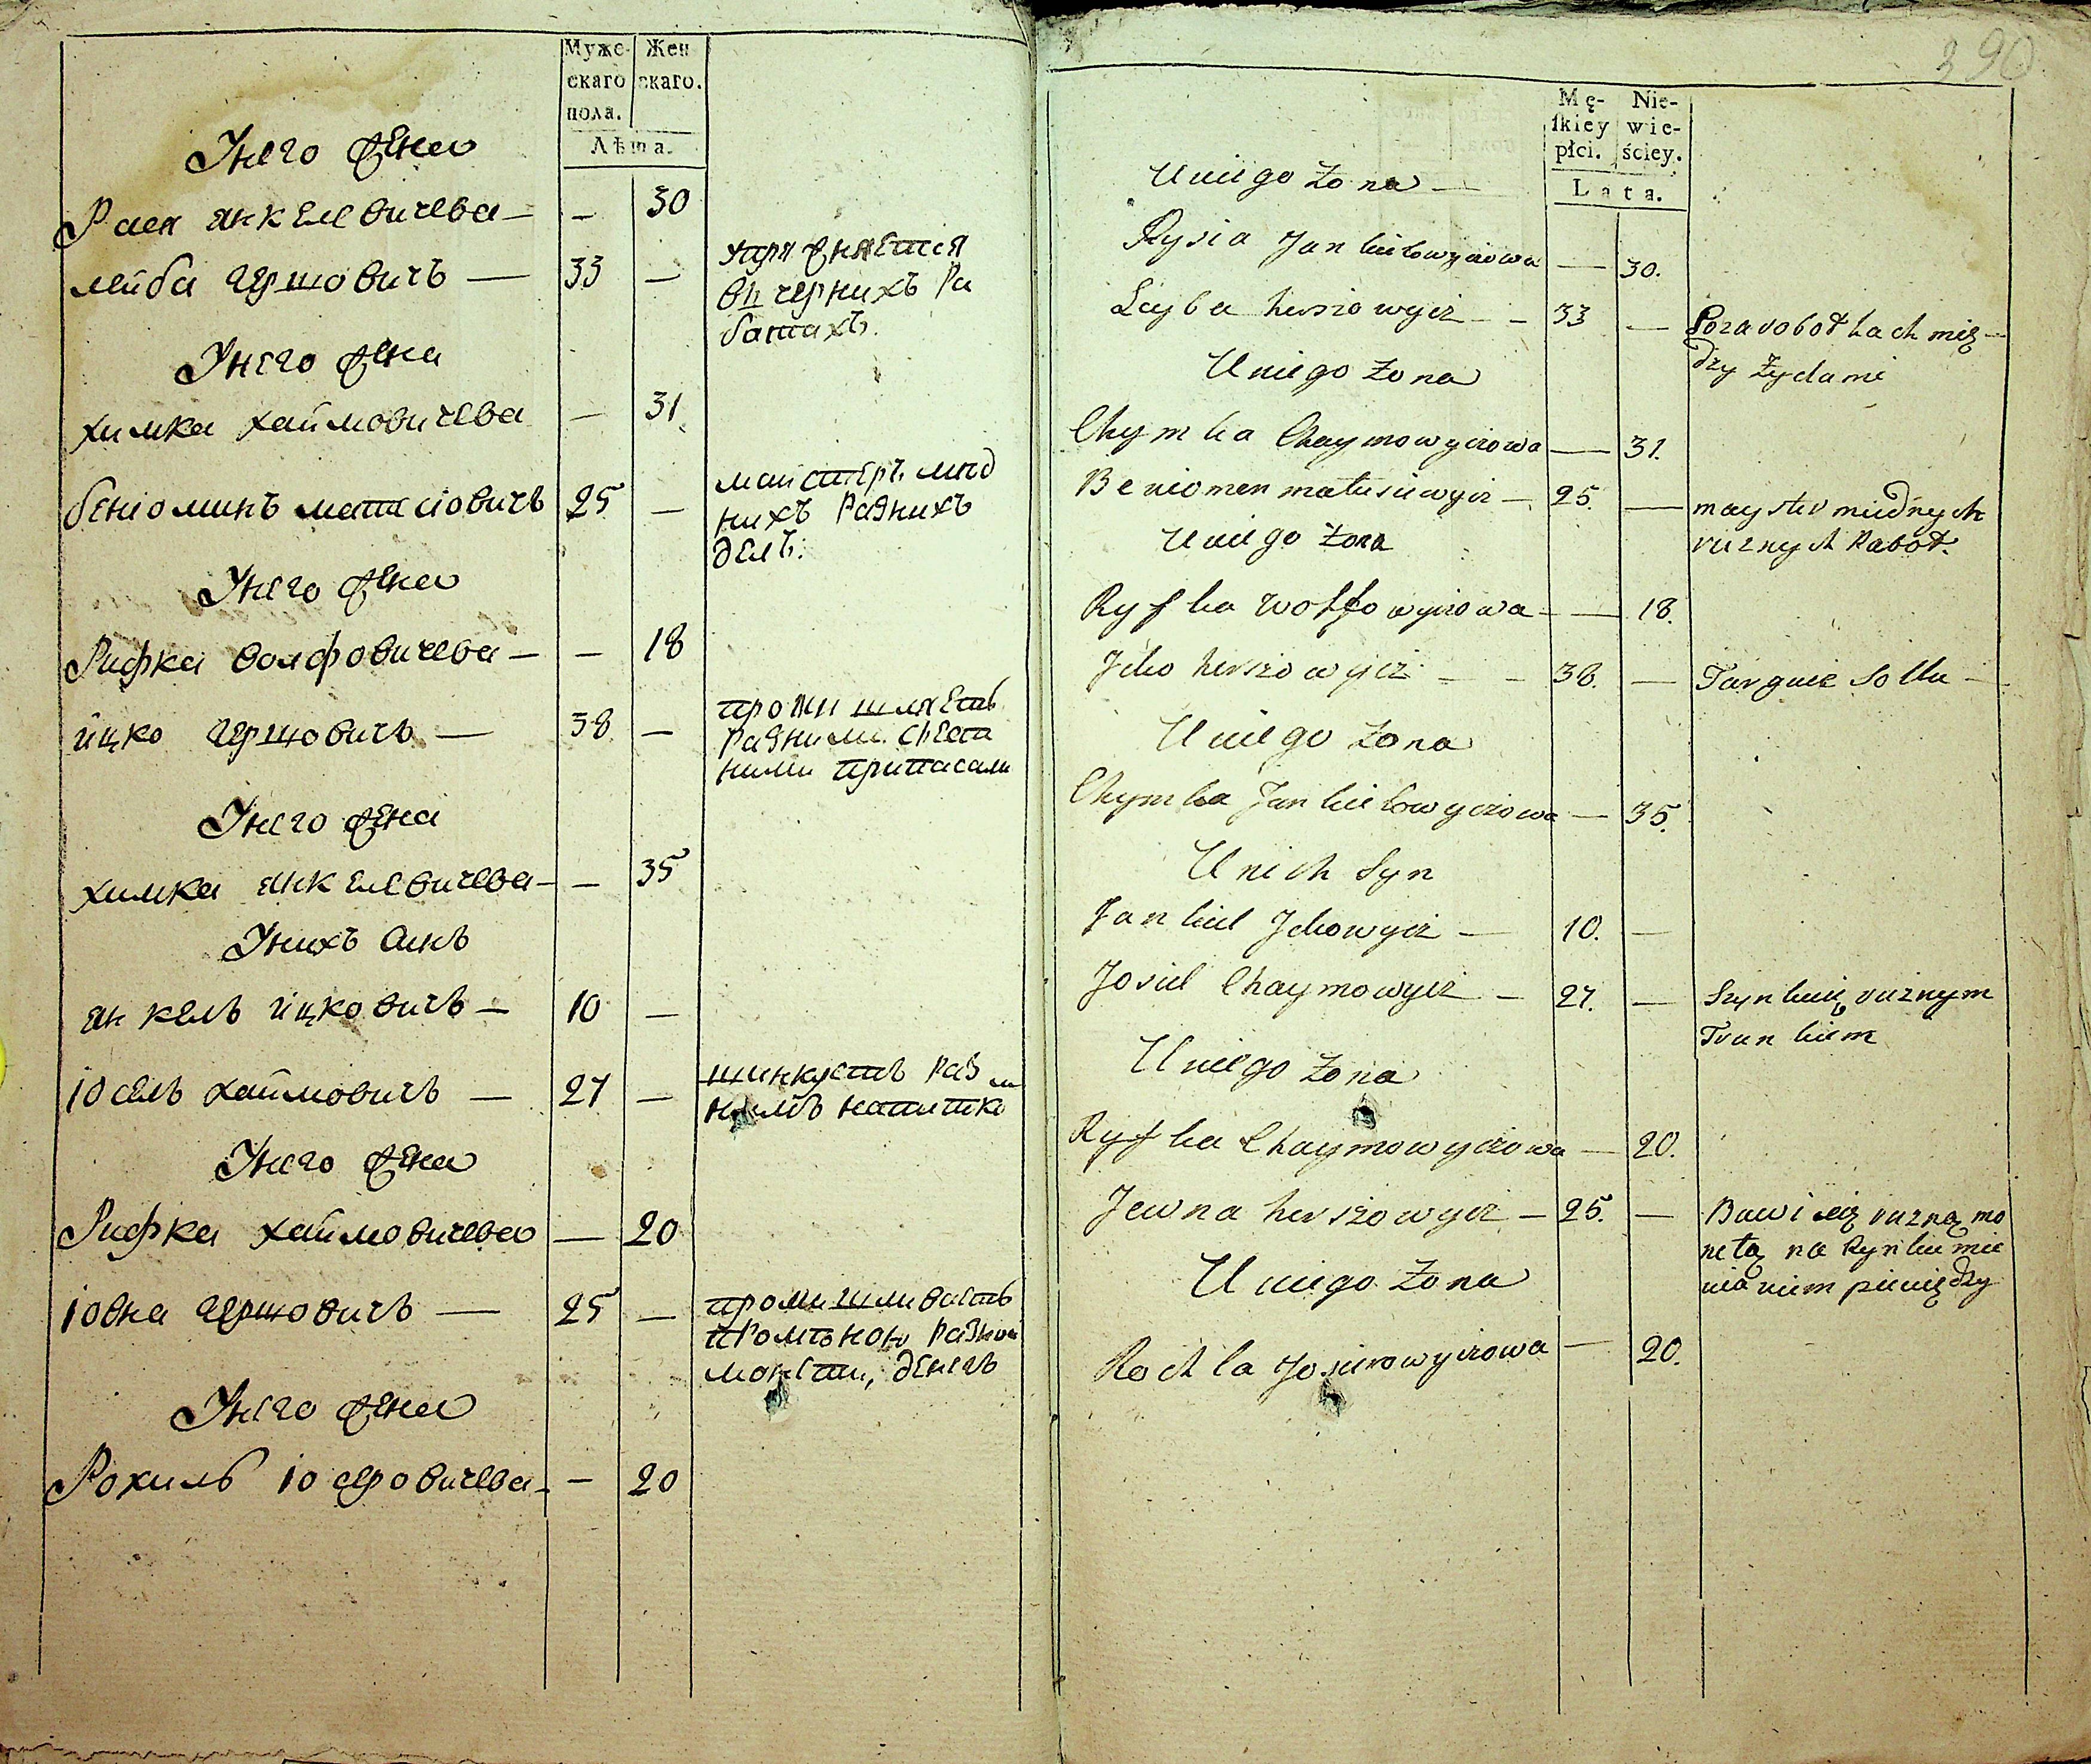 Муже- Жен
скаго скаго.
пола.
Лѣта.
Унего жена
Раея Янкелевичева — — 30
лейба гершовичъ — 33 — упражняется
вчернихъ Ра
ботахъ.
Унего жена
химка хаймовичева — 31
бениоминъ матасiовичъ 25 — майстеръ мѣд
нихъ Разнихъ
делъ:
Унего жена
Рифка волфовичева — — 18
ицко гершовичъ — 38 — промишляетъ
Разними съеста
ними припасами
Унего жена
химка янкелевичева — — 35
Унихъ синъ
янкель ицковичъ — 10 —
іосель хаймовичъ — 27 — шинкуетъ Раз
нимъ напитко
м
Унего жена
Рифка хаймовичева — 20
іовна гершовичъ — 25 — промишливаетъ
промѣною Разной
монети, денегъ
Унего жена
Рохиль іосеровичева — — 20
390
Mę- Nie-
skiey wie-
płci. ściey.
Lata.
U niego Żona —
Rysia Jankielowyczowa — 30.
Leyba herszowycz — — 33 — Po zarobotkach mię-
dzy Żydami
U niego Żona
Chymka Chaymowyczowa — 31.
Beniomen matusiewycz — 25. — mayster miednych
ruznych Rabot.
U niego Żona
Ryfka Wolfowyczowa — — 18.
Jcko herszowycz — — 38. — Targuie Solla —
U niego Żona
Chymka Jankielowyczowa — 35.
U nich Syn
Jankiel Jckowycz — 10. —
Josiel Chaymowycz — 27. — Szynkuię ruznym
Trunkiem
U niego Żona
Ryfka Chaymowyczowa — 20.
Jewna herszowycz — 25. — Bawi się ruzną mo
netą na Rynku mie
nianiem pieniędzy
U niego Żona
Rochla Josierowyczowa — 20.